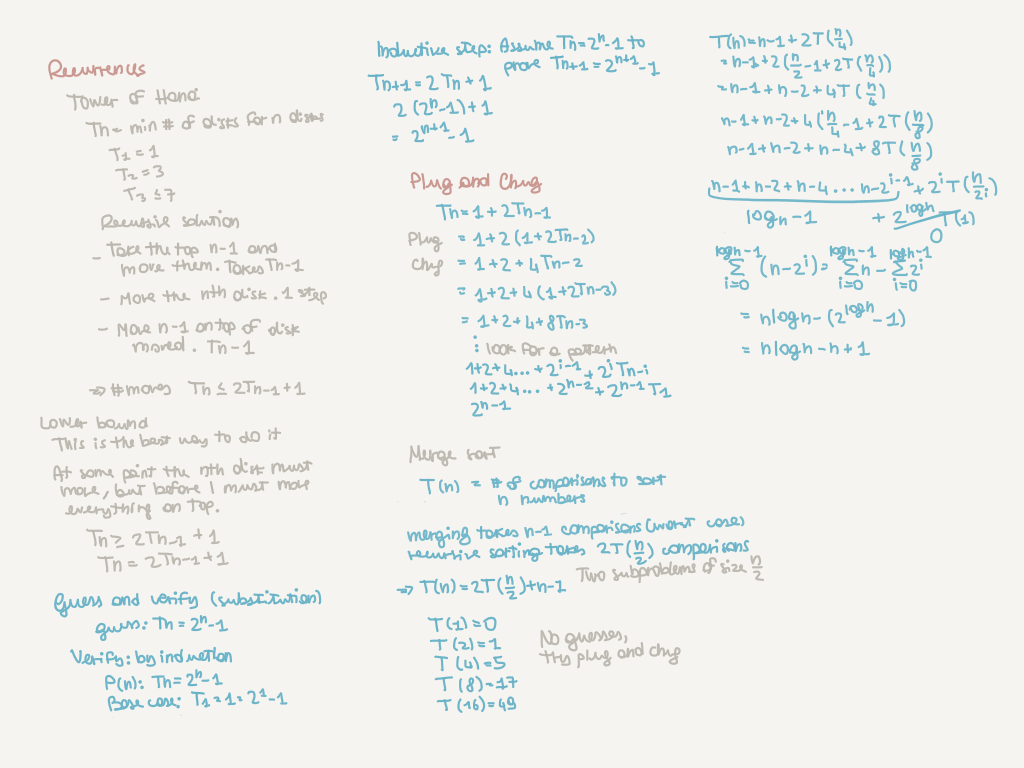 Recurrences
Tower of Hanoi
Tn = min # of disks for n disks
T1 = 1
T2 = 3
T3 ≤ 7
Recursive solution
- Take the top n-1 and
move them. Takes Tn-1
- Move the nth disk. 1 step
- Move n-1 on top of disk
moved. Tn-1
⇒ # moves Tn ≤ 2Tn-1 + 1
Lower bound
This is the best way to do it
At some point the nth disk must
move, but before I must move
everything on top.
Tn ≥ 2Tn-1 + 1
Tn = 2Tn-1 + 1
Guess and verify (substitution)
guess: Tn = 2^n - 1
Verify: by induction
P(n): Tn = 2^n - 1
Base case: T1 = 1 = 2^1 - 1
Inductive step: Assume Tn = 2^n - 1 to
prove Tn+1 = 2^(n+1) - 1
Tn+1 = 2Tn + 1
2(2^n - 1) + 1
= 2^(n+1) - 1
Plug and Chug
Tn = 1 + 2Tn-1
Plug = 1 + 2(1 + 2Tn-2)
Chug = 1 + 2 + 4Tn-2
= 1 + 2 + 4(1 + 2Tn-3)
= 1 + 2 + 4 + 8Tn-3
: look for a pattern
1 + 2 + 4 ... + 2^(i-1) + 2^i Tn-i
1 + 2 + 4 ... + 2^(n-2) + 2^(n-1) T1
2^n-1
Merge sort
T(n) = # of comparisons to sort
n numbers
merging takes n-1 comparisons (worst case)
recursive sorting takes 2T(n/2) comparisons
⇒ T(n) = 2T(n/2) + n-1 Two subproblems of size n/2
T(1) = 0
T(2) = 1
T(4) = 5
T(8) = 17
T(16) = 49
No guesses,
try plug and chug
T(n) = n-1 + 2T(n/4)
= n-1 + 2(n/2 - 1 + 2T(n/4))
= n-1 + n-2 + 4T(n/4)
n-1 + n-2 + 4(n/4 - 1 + 2T(n/8))
n-1 + n-2 + n-4 + 8T(n/8)
n-1 + n-2 + n-4 ... n-2^(i-1) + 2^i T(n/2^i)
logn - 1 + 2^logn T(1)
0
∑_{i=0}^{logn-1} (n - 2^i) = ∑_{i=0}^{logn-1} n - ∑_{i=0}^{logn-1} 2^i
= nlogn - (2^logn - 1)
= nlogn - n + 1